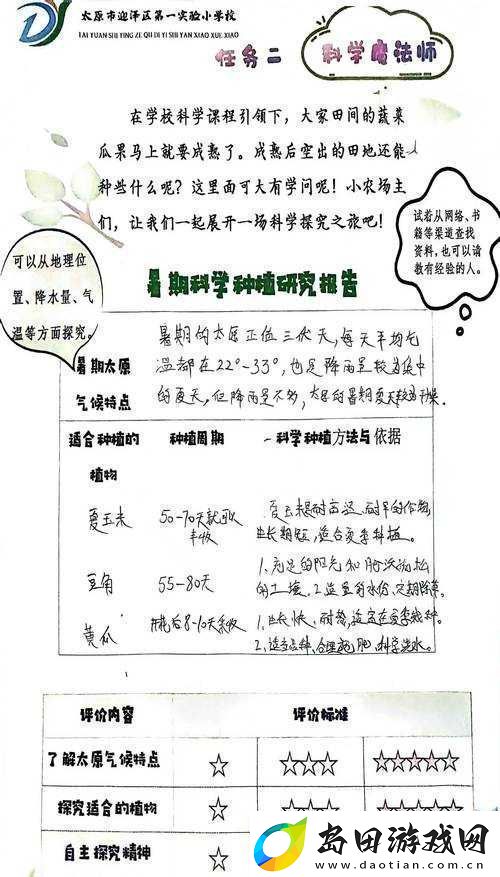 太原市迎泽区第一实验小学校
TAI YUAN SHI YING ZE QU DI YI SHI YAN XIAO XUE XIAO
任务二
科学魔法师
在学校科学课程引领下，大家田间的蔬菜
瓜果马上就要成熟了。成熟后空出的田地还能
种些什么呢？这里面可大有学问呢！小农场主
们，让我们一起展开一场科学探究之旅吧！
可以从地理位
置、降水量、气
温等方面探究。
试着从网络、书
籍等渠道查找
资料，也可以请
教有经验的人。
暑期科学种植研究报告
暑期太原
气候特点
暑期的太原正值三伏天，每天平均气
温都在22°-33°，也是降雨量较为集中
的夏天。但降雨量不多，太原的暑期夏天较为干燥。
适合种植的
植物
种植周期
科学种植方法与依据
夏玉米
50-70天就可以
丰收
夏玉米是耐高温、耐旱的作物，
生长期短，适合夏季种植。
豆角
55-80天
1、充足的阳光和肥沃疏松
的土壤。2、适量的水份，定期除草。
黄瓜
开花后8-10天采收
1、生长快、耐热，适宜在夏季栽种。
2、适当品种，合理施肥，科学浇水。
评价内容
评价标准
了解太原气候特点
☆
☆☆☆
☆☆☆☆☆
探究适合的植物
☆
☆☆☆
☆☆☆☆☆
自主探究精神
☆
岛田游戏网
www.daotian.com.cn